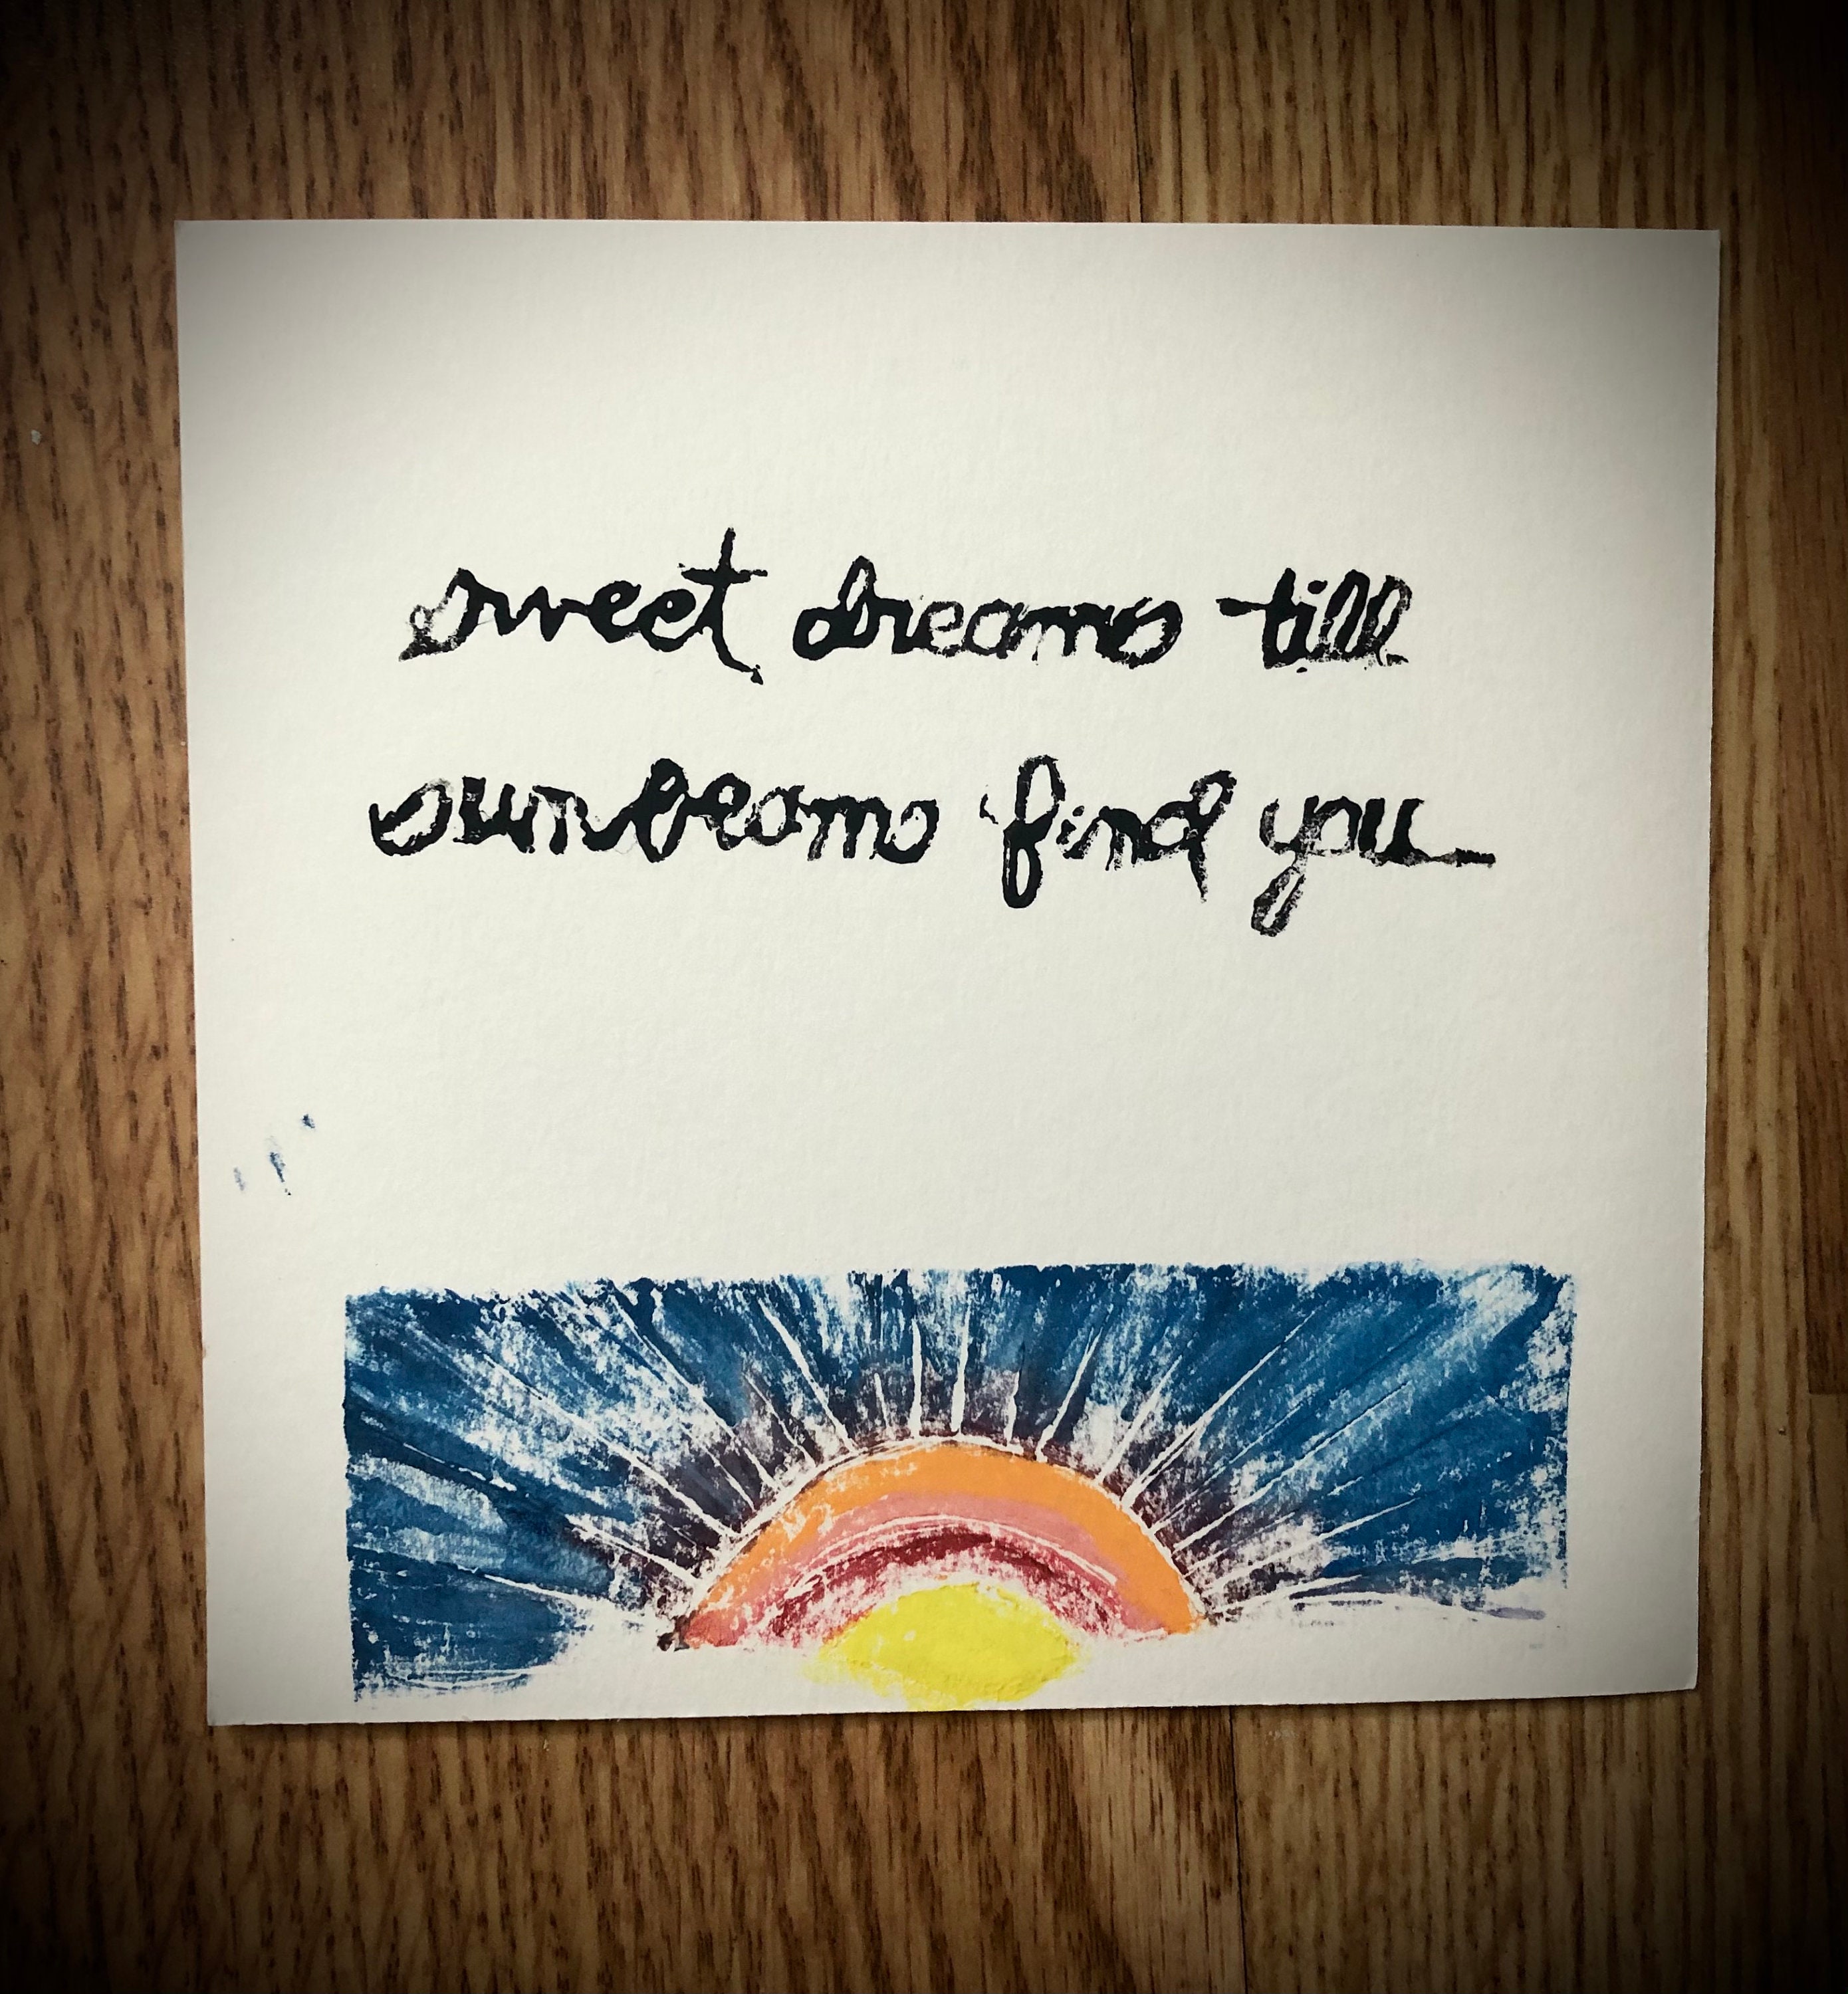 sweet dreams till
sunbeams find you